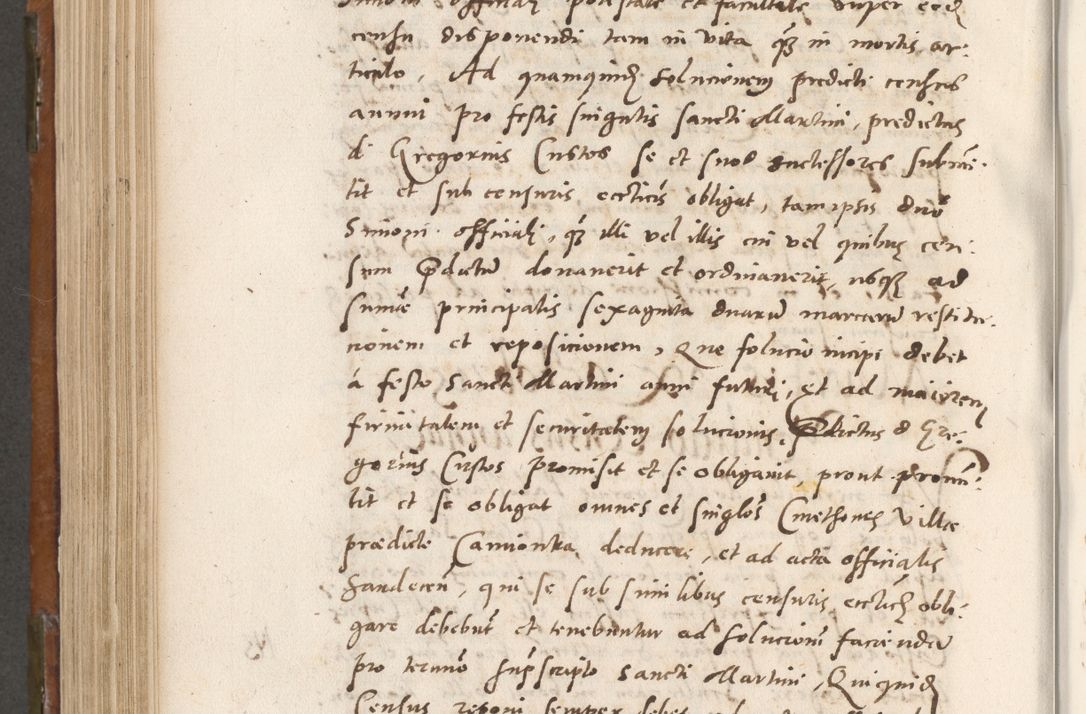 Simoni officiali potestate et facultate super eodem
censu disponendi tam in vita q3 in mortis ar-
ticulo, Ad quamquid solucionem predicti census
annui pro festis singulis sancti Martini, predictus
d Gregorius Custos se et suos successores submit-
tit et sub censuris eccticis obligat, tam ipsi dno
Simoni officiali, q3 illi vel illis cui vel quibus cen-
sum pdictum donaverit et ordinaverit, usq3 ad
summe principalis sexaginta duarum marcarum restitu-
cionem et reposicionem, Que solucio incipi debet
á festo Sancti Martini anni futuri, et ad maiorem
firmitatem et securitatem solucionis, pdictus d Gre-
gorius Custos promisit et se obligavit, prout promit-
tit et se obligat omnes et singlos Cmethones Villæ
prædicte Camionka deducere, et ad acta officialis
Sandecen, qui se sub similibus censuris ecctich obli-
gare debebunt et tenebuntur ad solucionem faciendam
pro termino supscripto Sancti Martini, Quiquid
Census reponi semper debet